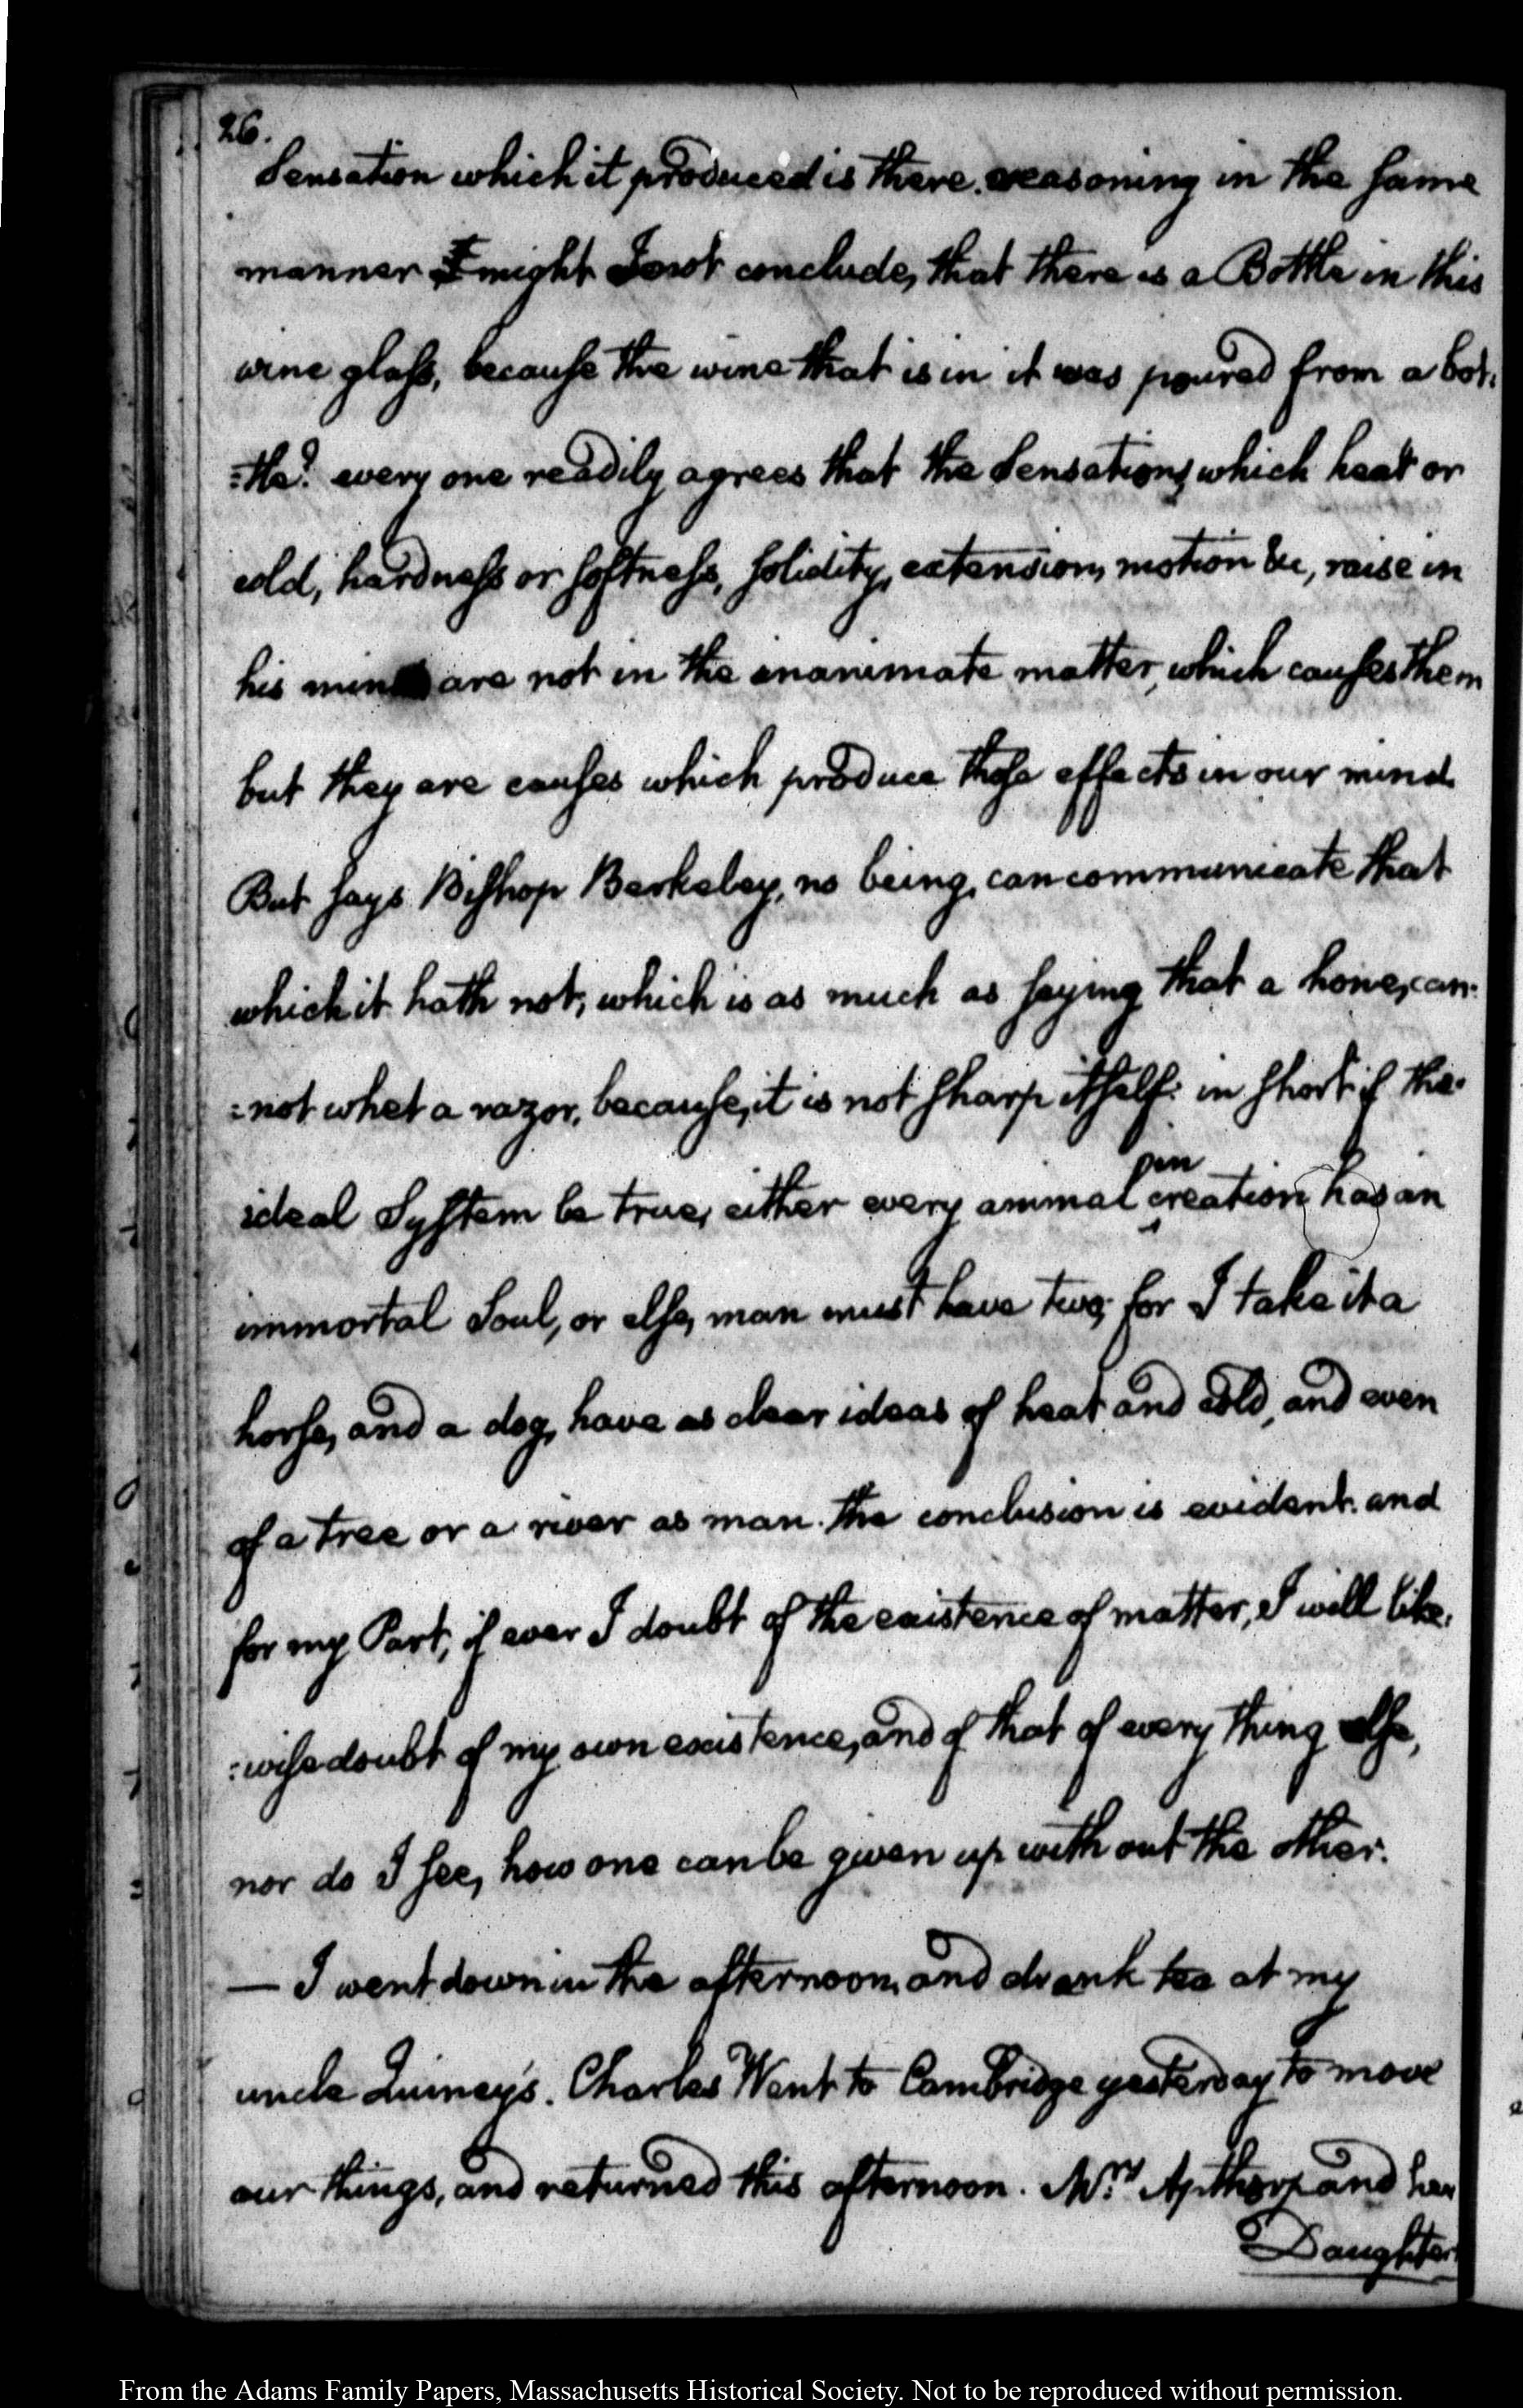 26.
Sensation which it produced is there. reasoning in the same
manner I might not conclude, that there is a Bottle in this
wine glass, because the wine that is in it was poured from a bot-
:tle? every one readily agrees that the Sensations, which heat or
cold, hardness or softness, solidity, extension, motion &c, raise in
his mind are not in the inanimate matter, which causes them
but they are causes which produce those effects in our mind.
But says Bishop Berkeley, no being, can communicate that
which it hath not, which is as much as saying that a hone, can-
:not whet a razor, because, it is not sharp itself. in short if the
ideal System be true, either every animal in creation has an
immortal Soul, or else, man must have two; for I take it a
horse, and a dog, have as clear ideas of heat and cold, and even
of a tree or a river as man. The conclusion is evident. and
for my Part, if ever I doubt of the existence of matter, I will like-
:wise doubt of my own existence, and of that of every thing else,
nor do I see, how one can be given up with out the other.
— I went down in the afternoon, and drank tea at my
uncle Quincy's. Charles Went to Cambridge yesterday to move
our things, and returned this afternoon. Mrs Apthorp and her
Daughter
From the Adams Family Papers, Massachusetts Historical Society. Not to be reproduced without permission.